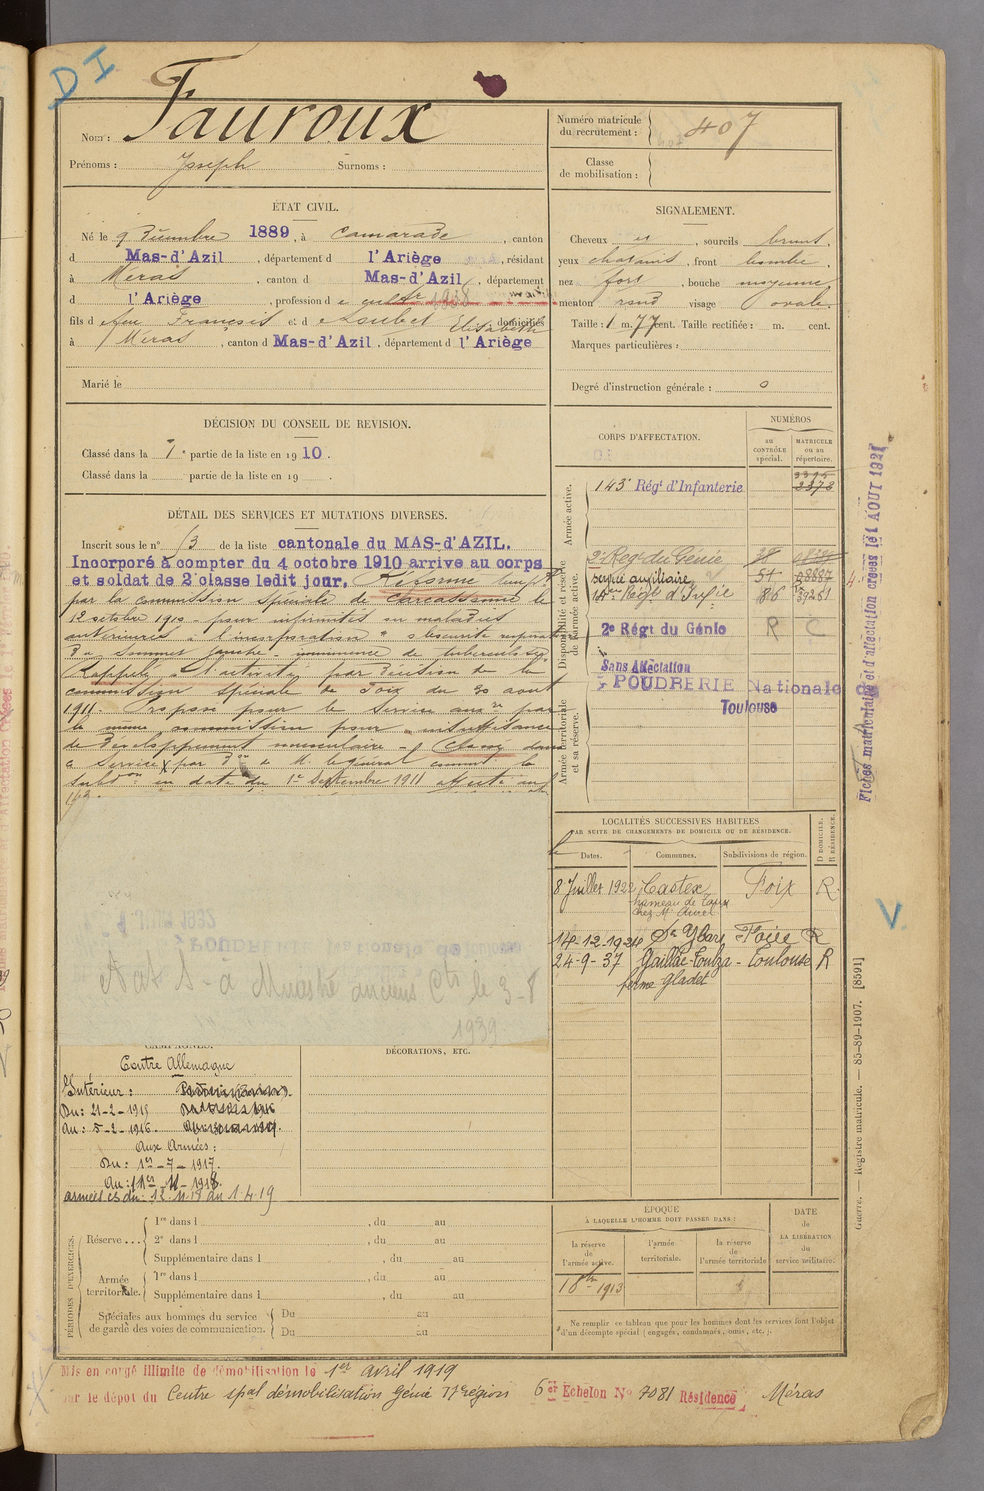 D I
Nom : Fauroux
Prénoms : Joseph Surnoms :
Numéro matricule du recrutement : 407
Classe de mobilisation :
ÉTAT CIVIL.
Né le 9 Décembre 1889, à Camarade, canton
d Mas-d'Azil, département d l'Ariège, résidant
à Méras, canton d Mas-d'Azil, département
d l'Ariège, profession d e cult
fils d e feu François et d e Loubet Elisabeth domiciliés
à Méras, canton d Mas-d'Azil, département d l'Ariège
Marié le
SIGNALEMENT.
Cheveux et, sourcils bruns,
yeux chatains, front bombé,
nez fort, bouche moyenne
menton rond visage ovale.
Taille : 1 m. 77 cent. Taille rectifiée : m. cent.
Marques particulières :
Degré d'instruction générale : 0
DÉCISION DU CONSEIL DE REVISION.
Classé dans la 7e partie de la liste en 1910.
Classé dans la partie de la liste en 19 .
DÉTAIL DES SERVICES ET MUTATIONS DIVERSES.
Inscrit sous le n° 13 de la liste cantonale du MAS-d'AZIL.
Incorporé à compter du 4 octobre 1910 arrive au corps
et soldat de 2e classe ledit jour. Réformé
par la commission spéciale de Carcassonne le
12 octobre 1910 pour infirmités ou maladies
antérieures à l'incorporation " obscurité
du sommet gauche - imminence de tuberculose
Rappelé à l'activité par décision de la
commission spéciale de Foix du 30 aout
1911. Proposé pour le service auxre par
la même commission pour insuffisance
de développement musculaire - Classé dans
le service par Don de M. le général commt la
subdon en date du 1er Septembre 1911 affecté au
143
CORPS D'AFFECTATION.
NUMÉROS
au CONTRÔLE spécial.
MATRICULE ou au répertoire.
Armée active.
143e Régt d'Infanterie
3373
Disponibilité et réserve de l'armée active.
2e Reg. du Génie 38
service auxiliaire 51 08887
Régt d'Infie 816 39251
2e Régt du Génie R C
Sans Affectation
POUDRERIE Nationale de
Toulouse
Armée territoriale et sa réserve.
Fiches matriculaire et d'affectation créées le 1 AOUT 1921
LOCALITÉS SUCCESSIVES HABITÉES
PAR SUITE DE CHANGEMENTS DE DOMICILE OU DE RÉSIDENCE.
Dates. Communes. Subdivisions de région. D DOMICILE. R RÉSIDENCE.
8 Juillet 1922 Castex Foix R.
hameau de
chez Mr
14-12-1924 Ste Ybars Foix R
24-9-37 Gaillac-Toulza - Toulouse R
ferme Gladet
JUIN 1932
POUDRERIE Nationale de Toulouse
anciens le 3-8
1939
CAMPAGNES.
DÉCORATIONS, ETC.
Contre Allemagne
Intérieur :
Du : 21-2-1915
au : 5-2-1916.
Aux Armées :
Du : 1er-7-1917.
Au : 11-1918.
armées cs du : 12.11.18 au 1.4.19
PÉRIODES D'EXERCICES.
Réserve ... 1re dans l , du au
2e dans l , du au
Supplémentaire dans l , du au
Armée territoriale. 1re dans l , du au
Supplémentaire dans l , du au
Spéciales aux hommes du service de garde des voies de communication. Du au
Du au
ÉPOQUE
À LAQUELLE L'HOMME DOIT PASSER DANS :
la réserve de l'armée active.
l'armée territoriale.
la réserve de l'armée territoriale
DATE de LA LIBÉRATION du service militaire.
1er 8bre 1913
Ne remplir ce tableau que pour les hommes dont les services font l'objet
d'un décompte spécial (engagés, condamnés, omis, etc.).
Guerre. — Registre matricule. — 85-89-1907. [8591]
V.
Mis en congé illimité de démobilisation le 1er avril 1919
par le dépôt du Centre spal démobilisation Génie 17e région 6er Echelon N° 7081 Résidence Méras